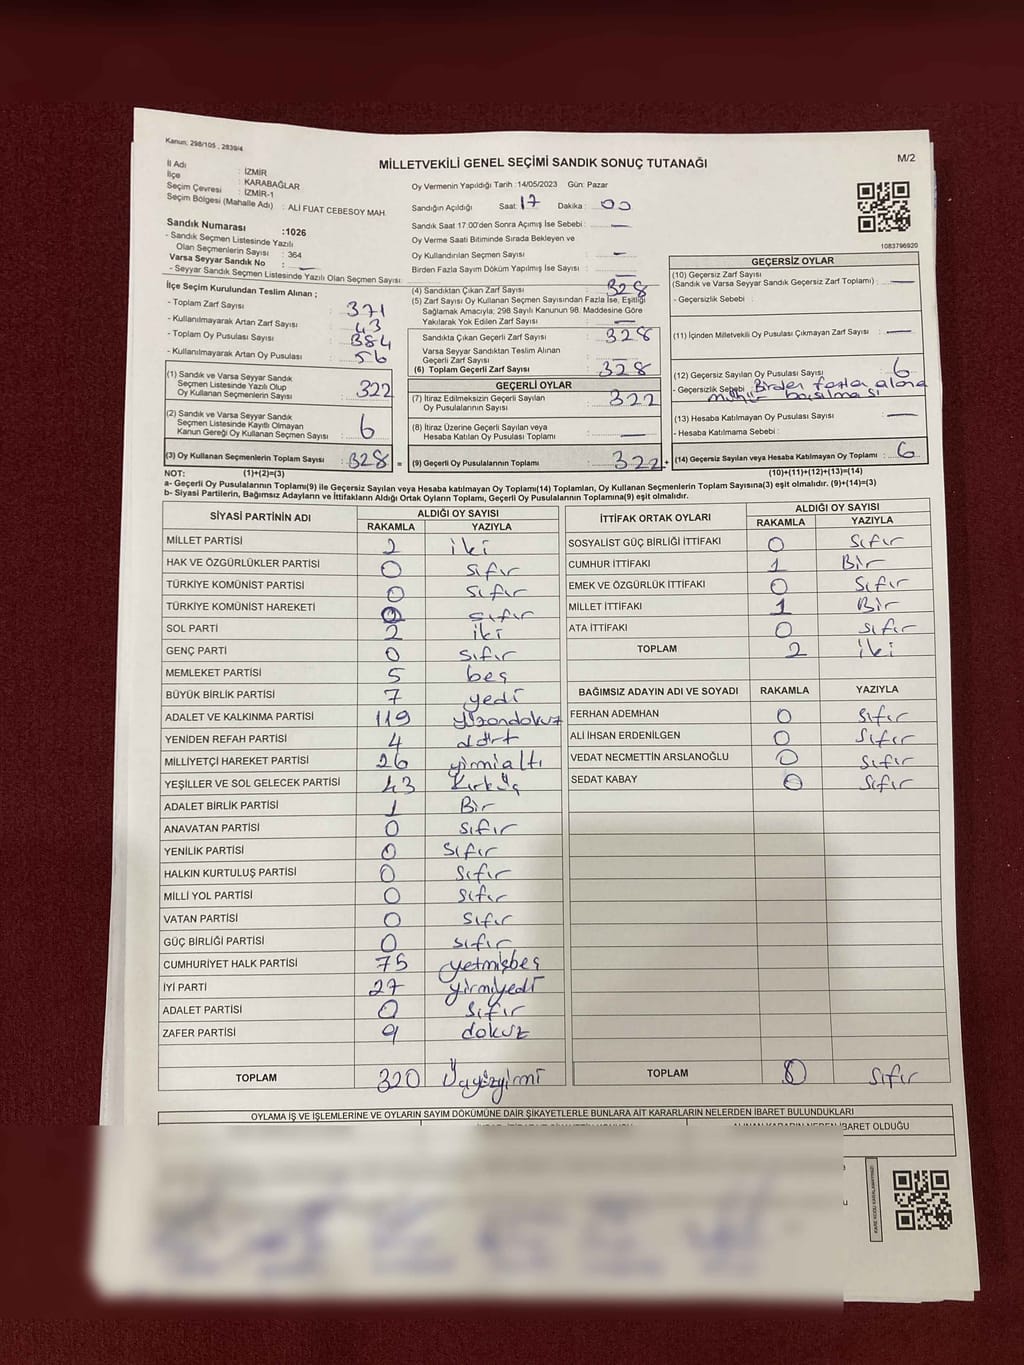 Kanun: 298/105 , 2839/4
MİLLETVEKİLİ GENEL SEÇİMİ SANDIK SONUÇ TUTANAĞI
M/2
İl Adı : İZMİR
İlçe : KARABAĞLAR
Seçim Çevresi : İZMİR-1
Seçim Bölgesi (Mahalle Adı) : ALİ FUAT CEBESOY MAH.
Sandık Numarası :1026
- Sandık Seçmen Listesinde Yazılı
Olan Seçmenlerin Sayısı : 364
Varsa Seyyar Sandık No : —
- Seyyar Sandık Seçmen Listesinde Yazılı Olan Seçmen Sayısı:
İlçe Seçim Kurulundan Teslim Alınan ;
- Toplam Zarf Sayısı : 371
- Kullanılmayarak Artan Zarf Sayısı : 43
- Toplam Oy Pusulası Sayısı : 384
- Kullanılmayarak Artan Oy Pusulası : 56
(1) Sandık ve Varsa Seyyar Sandık
Seçmen Listesinde Yazılı Olup
Oy Kullanan Seçmenlerin Sayısı : 322
(2) Sandık ve Varsa Seyyar Sandık
Seçmen Listesinde Kayıtlı Olmayan
Kanun Gereği Oy Kullanan Seçmen Sayısı : 6
(3) Oy Kullanan Seçmenlerin Toplam Sayısı : 328 =
Oy Vermenin Yapıldığı Tarih :14/05/2023 Gün: Pazar
Sandığın Açıldığı Saat: 17 Dakika : 00
Sandık Saat 17:00'den Sonra Açılmış İse Sebebi : —
Oy Verme Saati Bitiminde Sırada Bekleyen ve
Oy Kullandırılan Seçmen Sayısı : —
Birden Fazla Sayım Döküm Yapılmış İse Sayısı : —
(4) Sandıktan Çıkan Zarf Sayısı : 328
(5) Zarf Sayısı Oy Kullanan Seçmen Sayısından Fazla İse, Eşitliği
Sağlamak Amacıyla; 298 Sayılı Kanunun 98. Maddesine Göre
Yakılarak Yok Edilen Zarf Sayısı : —
Sandıkta Çıkan Geçerli Zarf Sayısı : 328
Varsa Seyyar Sandıktan Teslim Alınan
Geçerli Zarf Sayısı : —
(6) Toplam Geçerli Zarf Sayısı : 328
GEÇERLİ OYLAR
(7) İtiraz Edilmeksizin Geçerli Sayılan
Oy Pusulalarının Sayısı : 322
(8) İtiraz Üzerine Geçerli Sayılan veya
Hesaba Katılan Oy Pusulası Toplamı : —
(9) Geçerli Oy Pusulalarının Toplamı : 322 +
1083796920
GEÇERSİZ OYLAR
(10) Geçersiz Zarf Sayısı
(Sandık ve Varsa Seyyar Sandık Geçersiz Zarf Toplamı) : —
- Geçersizlik Sebebi :
(11) İçinden Milletvekili Oy Pusulası Çıkmayan Zarf Sayısı : —
(12) Geçersiz Sayılan Oy Pusulası Sayısı : 6
- Geçersizlik Sebebi : Birden fazla alana
mühür basılması
(13) Hesaba Katılmayan Oy Pusulası Sayısı : —
- Hesaba Katılmama Sebebi :
(14) Geçersiz Sayılan veya Hesaba Katılmayan Oy Toplamı : 6
NOT: (1)+(2)=(3) (10)+(11)+(12)+(13)=(14)
a- Geçerli Oy Pusulalarının Toplamı(9) ile Geçersiz Sayılan veya Hesaba Katılmayan Oy Toplamı(14) Toplamları, Oy Kullanan Seçmenlerin Toplam Sayısına(3) eşit olmalıdır. (9)+(14)=(3)
b- Siyasi Partilerin, Bağımsız Adayların ve İttifakların Aldığı Ortak Oyların Toplamı, Geçerli Oy Pusulalarının Toplamına(9) eşit olmalıdır.
SİYASİ PARTİNİN ADI ALDIĞI OY SAYISI
RAKAMLA YAZIYLA
MİLLET PARTİSİ 2 iki
HAK VE ÖZGÜRLÜKLER PARTİSİ 0 sıfır
TÜRKİYE KOMÜNİST PARTİSİ 0 sıfır
TÜRKİYE KOMÜNİST HAREKETİ 0 sıfır
SOL PARTİ 2 iki
GENÇ PARTİ 0 sıfır
MEMLEKET PARTİSİ 5 beş
BÜYÜK BİRLİK PARTİSİ 7 yedi
ADALET VE KALKINMA PARTİSİ 119 yüzondokuz
YENİDEN REFAH PARTİSİ 4 dört
MİLLİYETÇİ HAREKET PARTİSİ 26 yirmialtı
YEŞİLLER VE SOL GELECEK PARTİSİ 43 Kırküç
ADALET BİRLİK PARTİSİ 1 Bir
ANAVATAN PARTİSİ 0 sıfır
YENİLİK PARTİSİ 0 sıfır
HALKIN KURTULUŞ PARTİSİ 0 sıfır
MİLLİ YOL PARTİSİ 0 sıfır
VATAN PARTİSİ 0 sıfır
GÜÇ BİRLİĞİ PARTİSİ 0 sıfır
CUMHURİYET HALK PARTİSİ 75 yetmişbeş
İYİ PARTİ 27 yirmiyedi
ADALET PARTİSİ 0 sıfır
ZAFER PARTİSİ 9 dokuz
TOPLAM 320 Üçyüzyirmi
İTTİFAK ORTAK OYLARI ALDIĞI OY SAYISI
RAKAMLA YAZIYLA
SOSYALİST GÜÇ BİRLİĞİ İTTİFAKI 0 sıfır
CUMHUR İTTİFAKI 1 Bir
EMEK VE ÖZGÜRLÜK İTTİFAKI 0 sıfır
MİLLET İTTİFAKI 1 Bir
ATA İTTİFAKI 0 sıfır
TOPLAM 2 iki
BAĞIMSIZ ADAYIN ADI VE SOYADI RAKAMLA YAZIYLA
FERHAN ADEMHAN 0 sıfır
ALİ İHSAN ERDENİLGEN 0 sıfır
VEDAT NECMETTİN ARSLANOĞLU 0 sıfır
SEDAT KABAY 0 sıfır
TOPLAM 0 sıfır
OYLAMA İŞ VE İŞLEMLERİNE VE OYLARIN SAYIM DÖKÜMÜNE DAİR ŞİKAYETLERLE BUNLARA AİT KARARLARIN NELERDEN İBARET BULUNDUKLARI
İBARET OLDUĞU